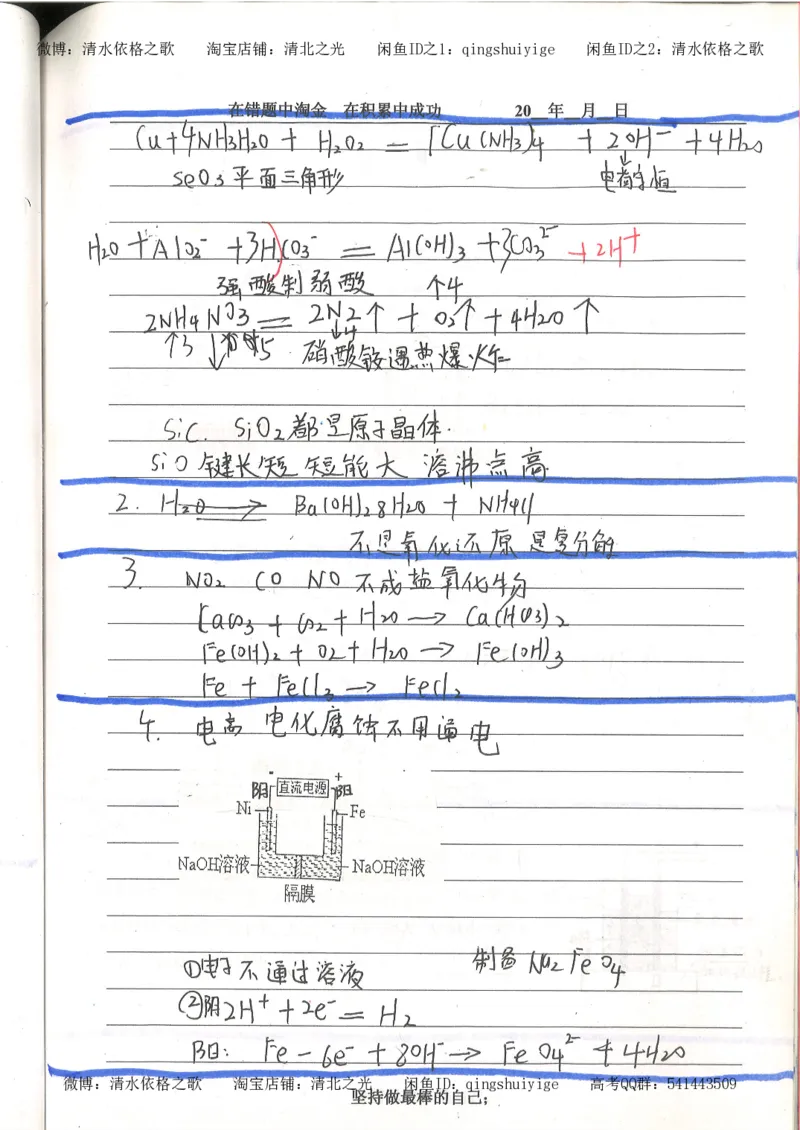 微博：清水依格之歌 淘宝店铺：清北之光 闲鱼ID之1：qingshuiyige 闲鱼ID之2：清水依格之歌
在错题中淘金 在积累中成功 20__年__月__日
Cu+4NH3H2O + H2O2 = [Cu(NH3)4 + 2OH⁻ + 4H2O
SeO3 平面三角形 电荷守恒
H2O + AlO2⁻ + 3HCO3⁻ = Al(OH)3 + 3CO3²⁻ + 2H⁺
强酸制弱酸 ↑4
2NH4NO3 = 2N2↑ + O2↑ + 4H2O↑
↑3 ↓5 ↓4 硝酸铵遇热爆炸
SiC. SiO2都是原子晶体.
SiO 键长短 短能大 溶沸点高
2. H2O → Ba(OH)28H2O + NH4Cl
不是氧化还原 是复分解
3. NO2 CO NO 不成盐氧化物
CaCO3 + CO2 + H2O → Ca(HCO3)2
Fe(OH)2 + O2 + H2O → Fe(OH)3
Fe + FeCl3 → FeCl2
4. 电离 电化腐蚀不用通电
- +
阴 直流电源 阳
Ni Fe
NaOH溶液 NaOH溶液
隔膜
①电子不通过溶液 制备 Na2FeO4
②阴2H⁺ + 2e⁻ = H2
阳: Fe - 6e⁻ + 8OH⁻ → FeO4²⁻ + 4H2O
微博：清水依格之歌 淘宝店铺：清北之光 闲鱼ID：qingshuiyige 高考QQ群：541443509
坚持做最棒的自己;